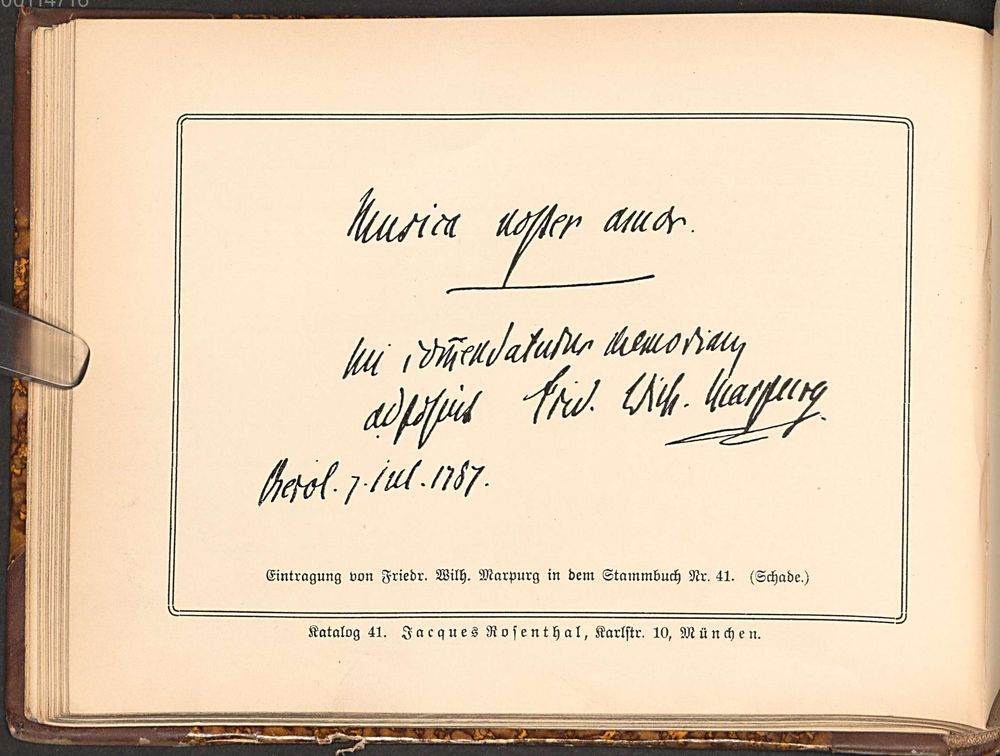 00114716
Musica noster amor.
in com̅endatutur memoriam
adposuit Frid. Wilh. Marpurg.
Berol. 7. iul. 1787.
Eintragung von Friedr. Wilh. Marpurg in dem Stammbuch Nr. 41. (Schade.)
Katalog 41. Jacques Rosenthal, Karlstr. 10, München.